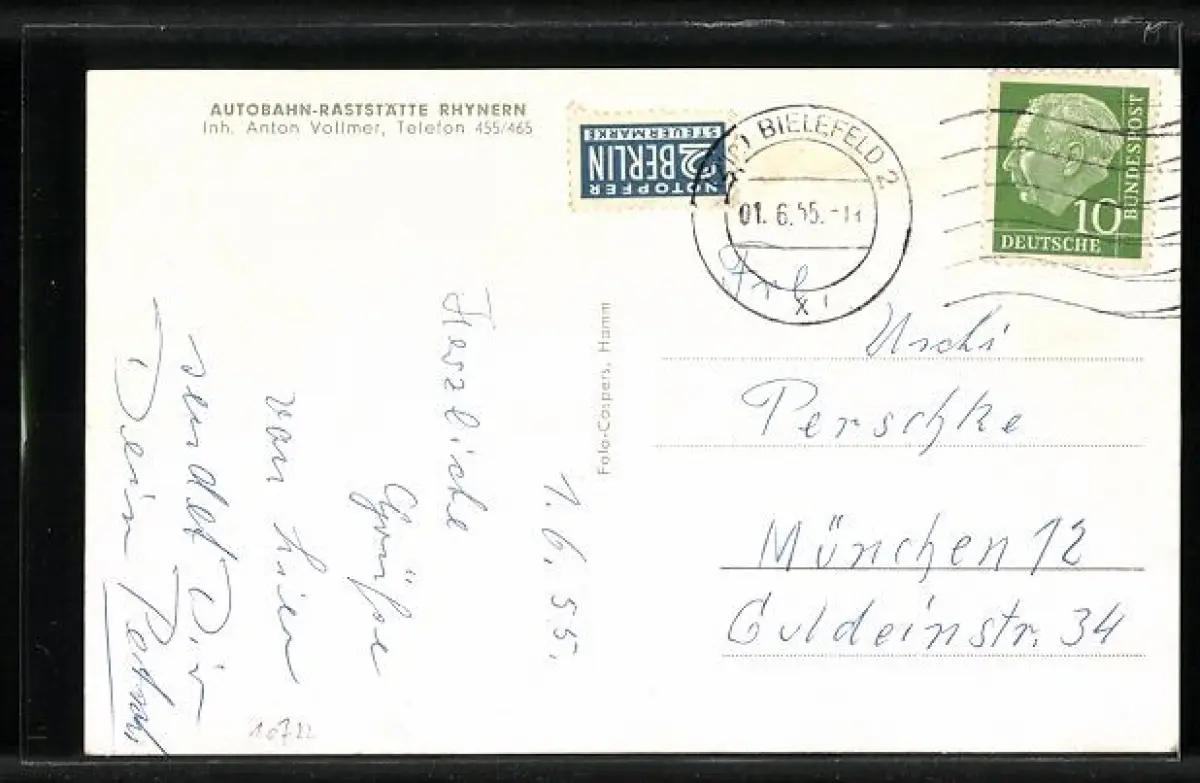 AUTOBAHN-RASTSTÄTTE RHYNERN
Inh. Anton Vollmer, Telefon 455/465
NOTOPFER
2 BERLIN
STEUERMARKE
BIELEFELD 2
01. 6. 55.
X
10
DEUTSCHE
BUNDESPOST
1. 6. 55.
Herzliche
Grüße
von hier
sendet Dir
Dein
Foto-Caspers, Hamm
Frl.
Uschi
Perschke
München 12
Guldeinstr. 34
10722